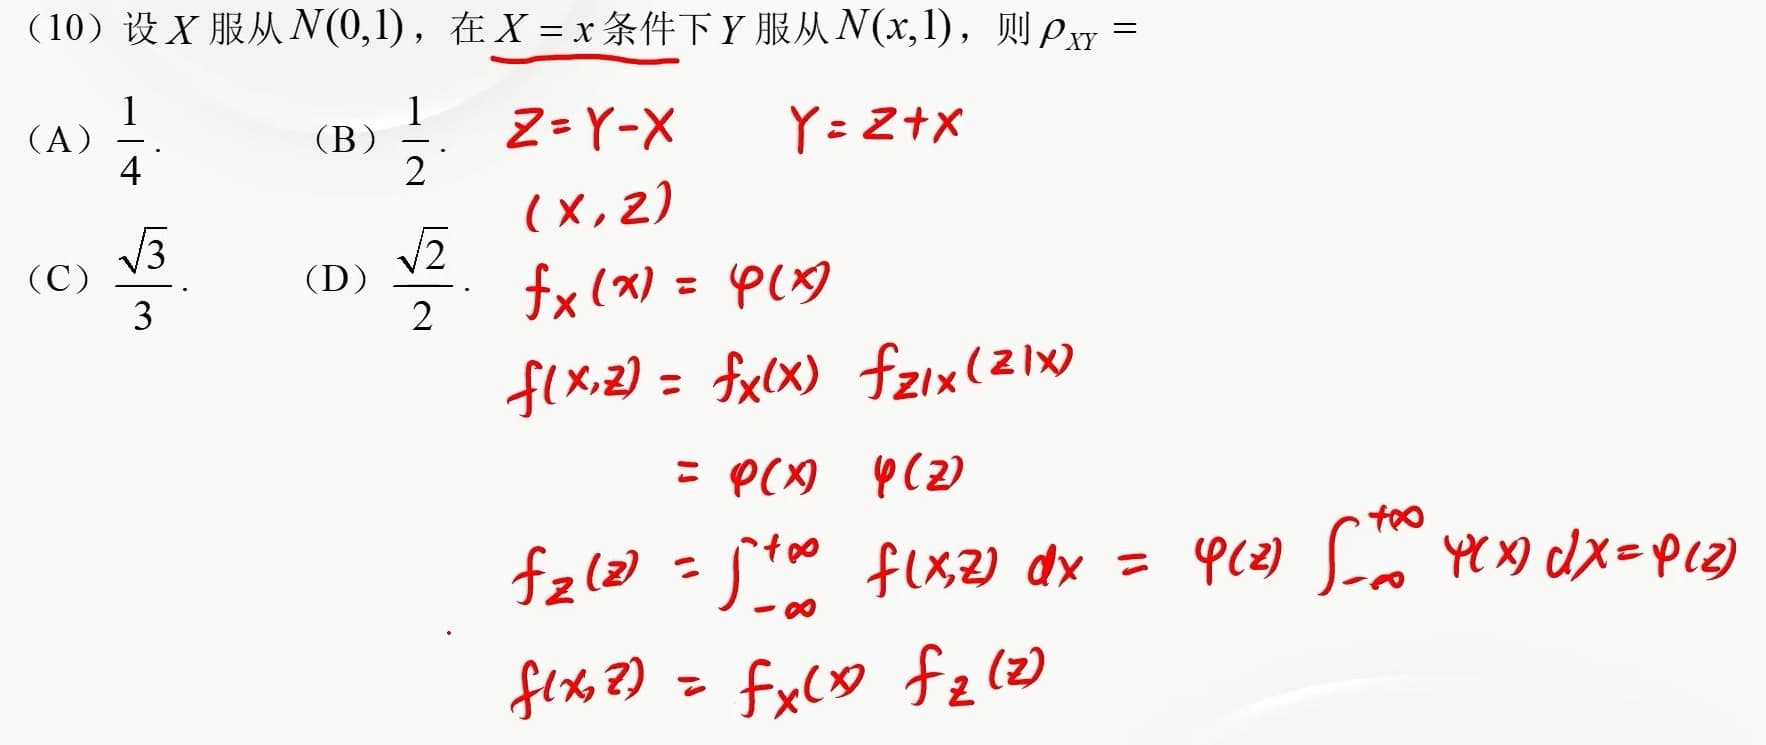 （10）设 X 服从 N(0,1)，在 X = x 条件下 Y 服从 N(x,1)，则 ρ_{XY} =
（A）1/4.  （B）1/2.
（C）√3/3.  （D）√2/2.
Z = Y - X  Y = Z + X
(X, Z)
f_X(x) = φ(x)
f(x,z) = f_X(x) f_{Z|X}(z|x)
= φ(x) φ(z)
f_Z(z) = ∫_{-∞}^{+∞} f(x,z) dx = φ(z) ∫_{-∞}^{+∞} φ(x) dx = φ(z)
f(x,z) = f_X(x) f_Z(z)